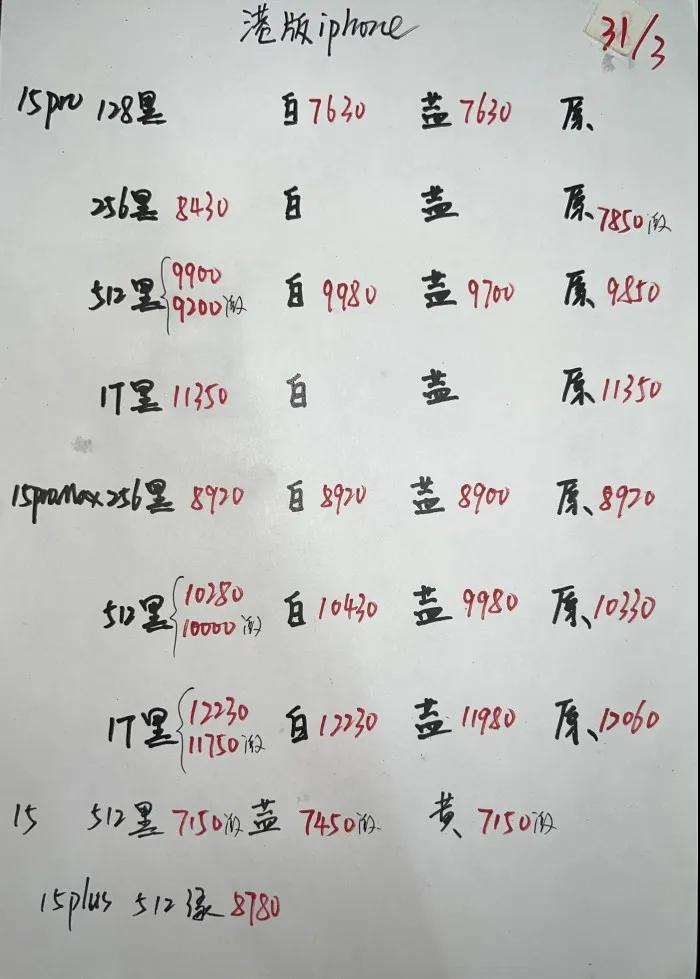 港版iphone 31/3
15pro 128黑 白7630 蓝7630 原、
256黑 8430 白 蓝 原、7850激
512黑 9900 9200激 白 9980 蓝 9700 原、9850
1T黑 11350 白 蓝 原、11350
15promax 256黑 8920 白 8920 蓝 8900 原、8920
512黑 10280 10000激 白 10430 蓝 9980 原、10330
1T黑 12230 11750激 白 12230 蓝 11980 原、12060
15 512黑 7150激 蓝 7450激 黄 7150激
15plus 512绿 8780